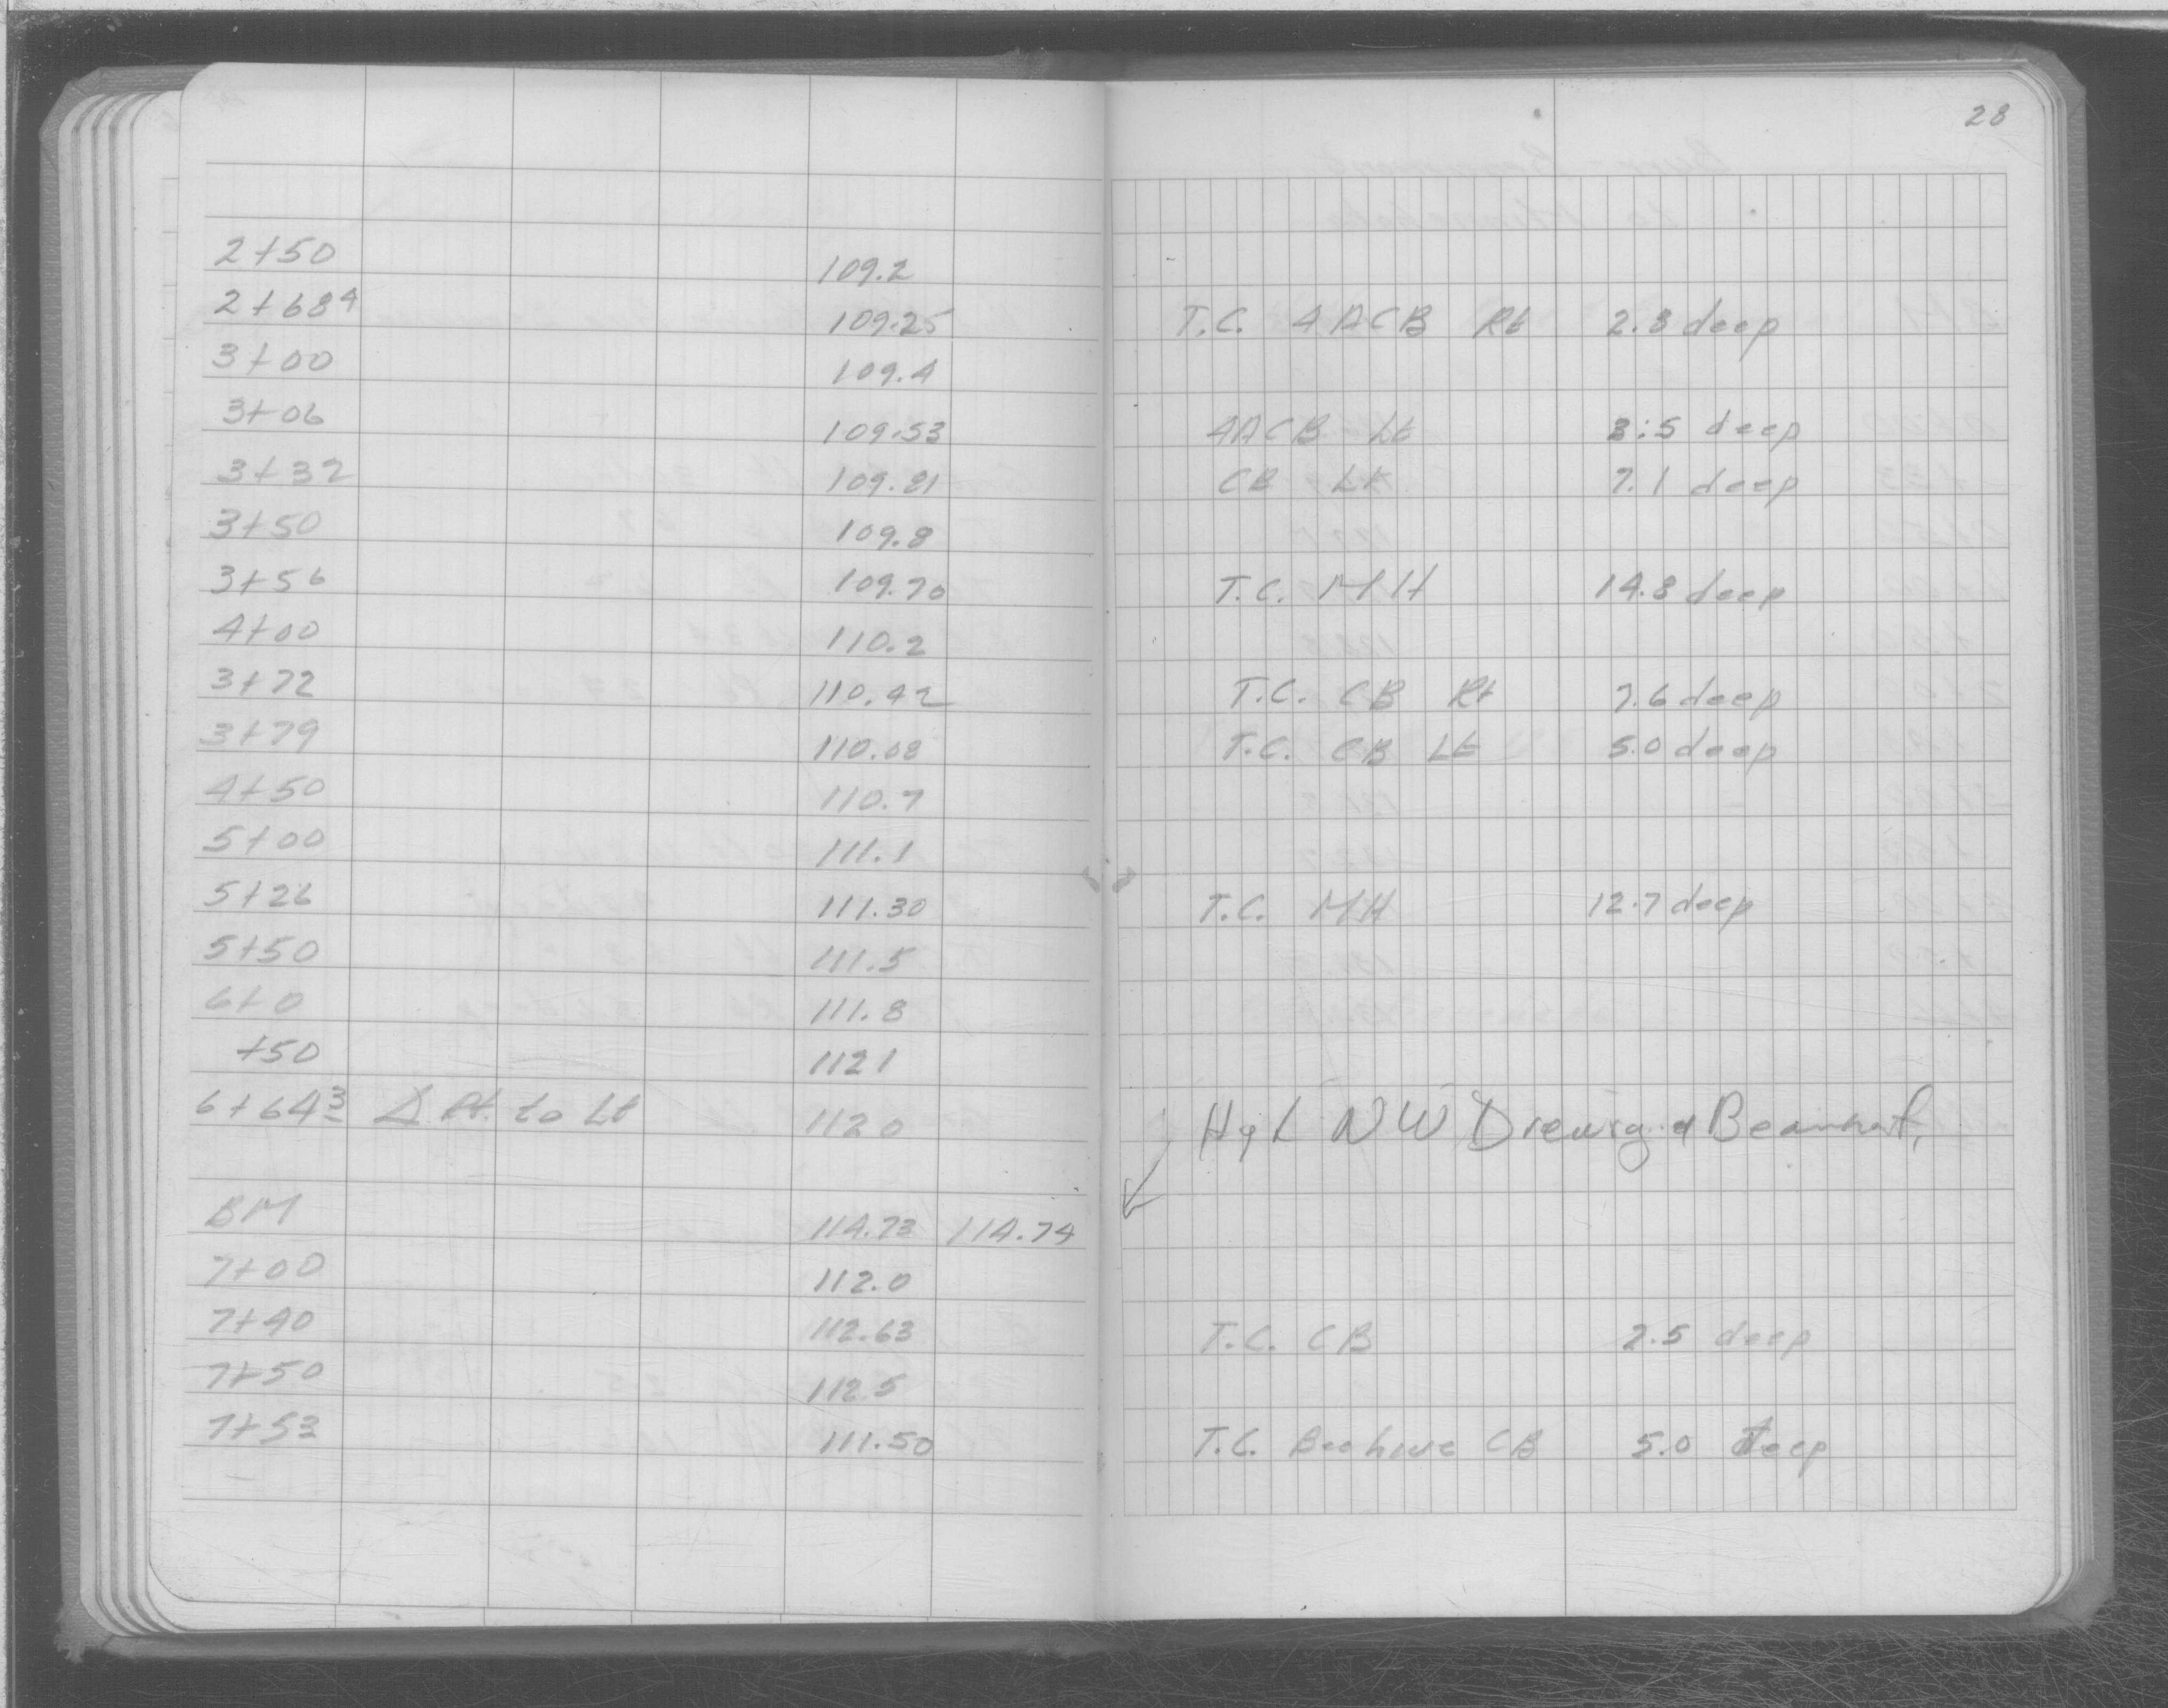 28
2+50 109.2
2+68⁴ 109.25 T.C. 4ACB Rt 2.8 deep
3+00 109.4
3+06 109.53 4ACB Lt 3.5 deep
3+32 109.21 CB Lt 7.1 deep
3+50 109.8
3+56 109.70 T.C. MH 14.8 deep
4+00 110.2
3+72 110.42 T.C. CB Rt 7.6 deep
3+79 110.08 T.C. CB Lt 5.0 deep
4+50 110.7
5+00 111.1
5+26 111.30 T.C. MH 12.7 deep
5+50 111.5
6+0 111.8
+50 112 1
6+64³ Δ Pt. to Lt 112 0 NW & Beaumont
BM 114.73 114.74
7+00 112.0
7+40 112.63 T.C. CB 2.5 deep
7+50 112 5
7+53 111.50 T.C. Beehive CB 5.0 deep